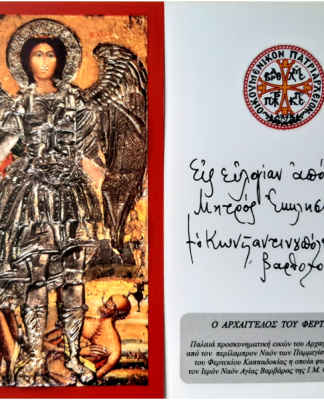 ΟΙΚΟΥΜΕΝΙΚΟΝ ΠΑΤΡΙΑΡΧΕΙΟΝ
Εἰς εὐλογίαν ἀπό
Μητρός
Βαρθολο
Ο ΑΡΧΑΓΓΕΛΟΣ ΤΟΥ ΦΕΡΤ
Παλαιά προσκυνηματική εικών του Αρχαγ
από τον περίλαμπρον Ναόν των Παμμεγίσ
του Φερτεκίου Καππαδοκίας η οποία φυ
τον Ιερόν Ναόν Αγίας Βαρβάρας της Ι.Μ.